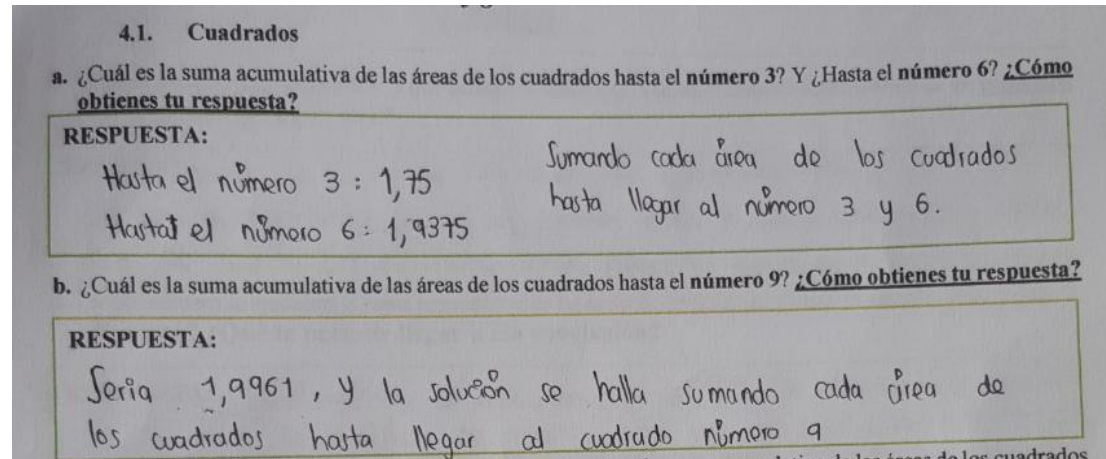 4.1. Cuadrados
a. ¿Cuál es la suma acumulativa de las áreas de los cuadrados hasta el número 3? Y ¿Hasta el número 6? ¿Cómo
obtienes tu respuesta?
RESPUESTA:
Hasta el número 3 : 1,75
Hasta el número 6 : 1,9375
Sumando cada área de los cuadrados
hasta llegar al número 3 y 6.
b. ¿Cuál es la suma acumulativa de las áreas de los cuadrados hasta el número 9? ¿Cómo obtienes tu respuesta?
RESPUESTA:
Seria 1,9961, y la solución se halla sumando cada área de
los cuadrados hasta llegar al cuadrado número 9
de los cuadrados